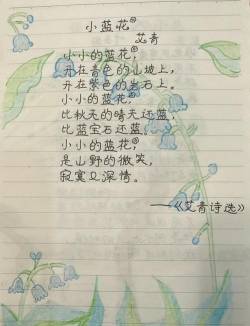 小蓝花®
艾青
小小的蓝花,®
开在青色的山坡上,
开在紫色的岩石上。
小小的蓝花,®
比秋天的晴天还蓝,
比蓝宝石还蓝。
小小的蓝花,®
是山野的微笑,
寂寞又深情。
——《艾青诗选》